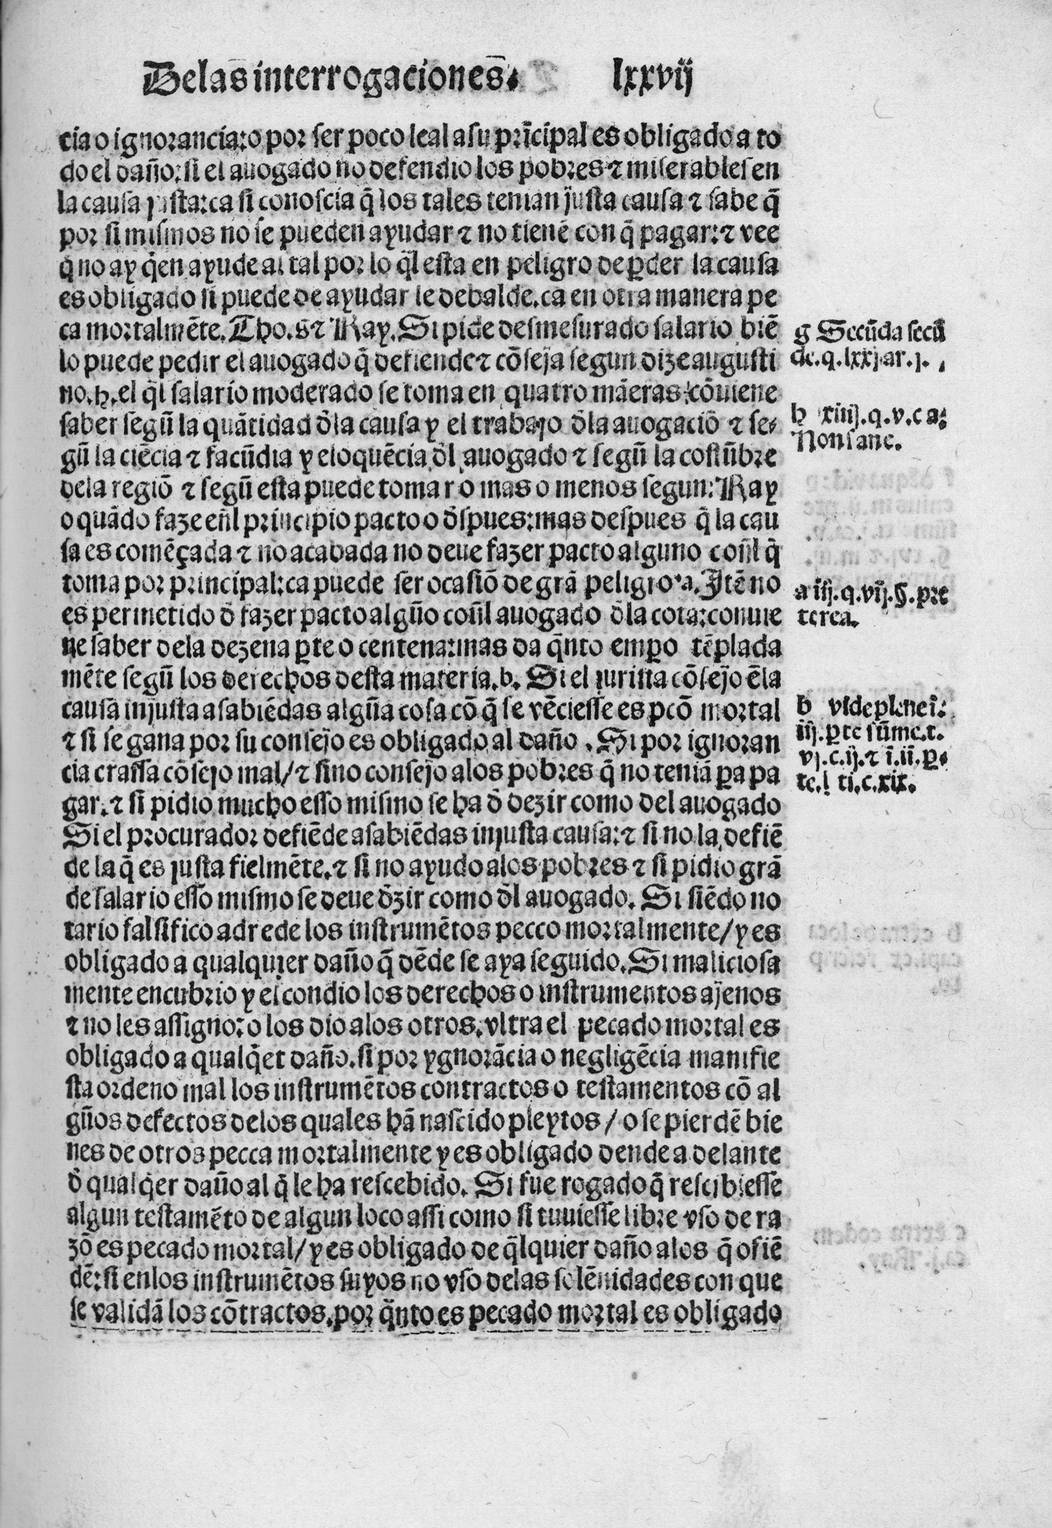 Delas interrogaciones. lxxvij
cia o ignorancia: o por ser poco leal a su prīcipal es obligado a to
do el daño: si el auogado no defendio los pobres ⁊ miserables en
la causa justa: ca si conoscia q̄ los tales tenian justa causa ⁊ sabe q̄
por si mismos no se pueden ayudar ⁊ no tienē con q̄ pagar: ⁊ vee
q̄ no ay q̄en ayude al tal por lo q̄l esta en peligro de ꝑder la causa
es obligado si puede de ayudar le debalde. ca en otra manera pe
ca mortalmēte. Tho. g ⁊ Ray. Si pide desmesurado salario biē
lo puede pedir el auogado q̄ defiende ⁊ cōseja segun dize augusti
no. h. el q̄l salario moderado se toma en quatro māeras: cōuiene
saber segū la quātidad d̄la causa y el trabajo d̄la auogaciō ⁊ se-
gū la ciēcia ⁊ facūdia y eloquēcia d̄l auogado ⁊ segū la costūbre
dela regiō ⁊ segū esta puede tomar o mas o menos segun: Ray
o quādo faze eñl principio pacto o d̄spues: mas despues q̄ la cau
sa es comēçada ⁊ no acabada no deue fazer pacto alguno coñl q̄
toma por principal: ca puede ser ocasiō de grā peligro. a. Itē no
es permetido d̄ fazer pacto algūo coñl auogado d̄la cota: conuie
ne saber dela dezena ꝑte o centena: mas da q̄nto empo tēplada
mēte segū los derechos desta materia. b. Si el jurista cōsejo ēla
causa injusta a sabiēdas algūa cosa cō q̄ se vēciesse es pcō mortal
⁊ si se gana por su consejo es obligado al daño. Si por ignoran
cia crassa cōsejo mal/ ⁊ si no consejo alos pobres q̄ no teniā ꝑa pa
gar. ⁊ si pidio mucho esso mismo se ha d̄ dezir como del auogado
Si el procurador defiēde a sabiēdas injusta causa: ⁊ si no la defiē
de la q̄ es justa fielmēte. ⁊ si no ayudo alos pobres ⁊ si pidio grā
de salario esso mismo se deue d̄zir como d̄l auogado. Si siēdo no
tario falsifico adrede los instrumētos pecco mortalmente/ y es
obligado a qualquier daño q̄ dēde se aya seguido. Si maliciosa
mente encubrio y escondio los derechos o instrumentos ajenos
⁊ no les assigno: o los dio alos otros. vltra el pecado mortal es
obligado a qualq̄et daño. si por ygnorācia o negligēcia manifie
sta ordeno mal los instrumētos contractos o testamentos cō al
gūos defectos delos quales hā nascido pleytos / o se pierdē bie
nes de otros pecca mortalmente y es obligado dende adelante
d̄ qualq̄er daño al q̄ le ha rescebido. Si fue rogado q̄ rescibiesse
algun testamēto de algun loco assi como si tuuiesse libre vso de ra
zō es pecado mortal/ y es obligado de q̄lquier daño alos q̄ ofiē
dē: si enlos instrumētos suyos no vso delas solēnidades con que
se validā los cōtractos. por q̄nto es pecado mortal es obligado
g Secūda secū
de. q. lxxj ar. j.
h xiiij. q. v. c a:
Non sane.
a iij. q. vij. §. pre
terea.
b vide plene ī:
iij. ꝑte sūme. t.
vj. c. ij. ⁊ ī. ii. ꝑ-
te. l ti. c. xix.